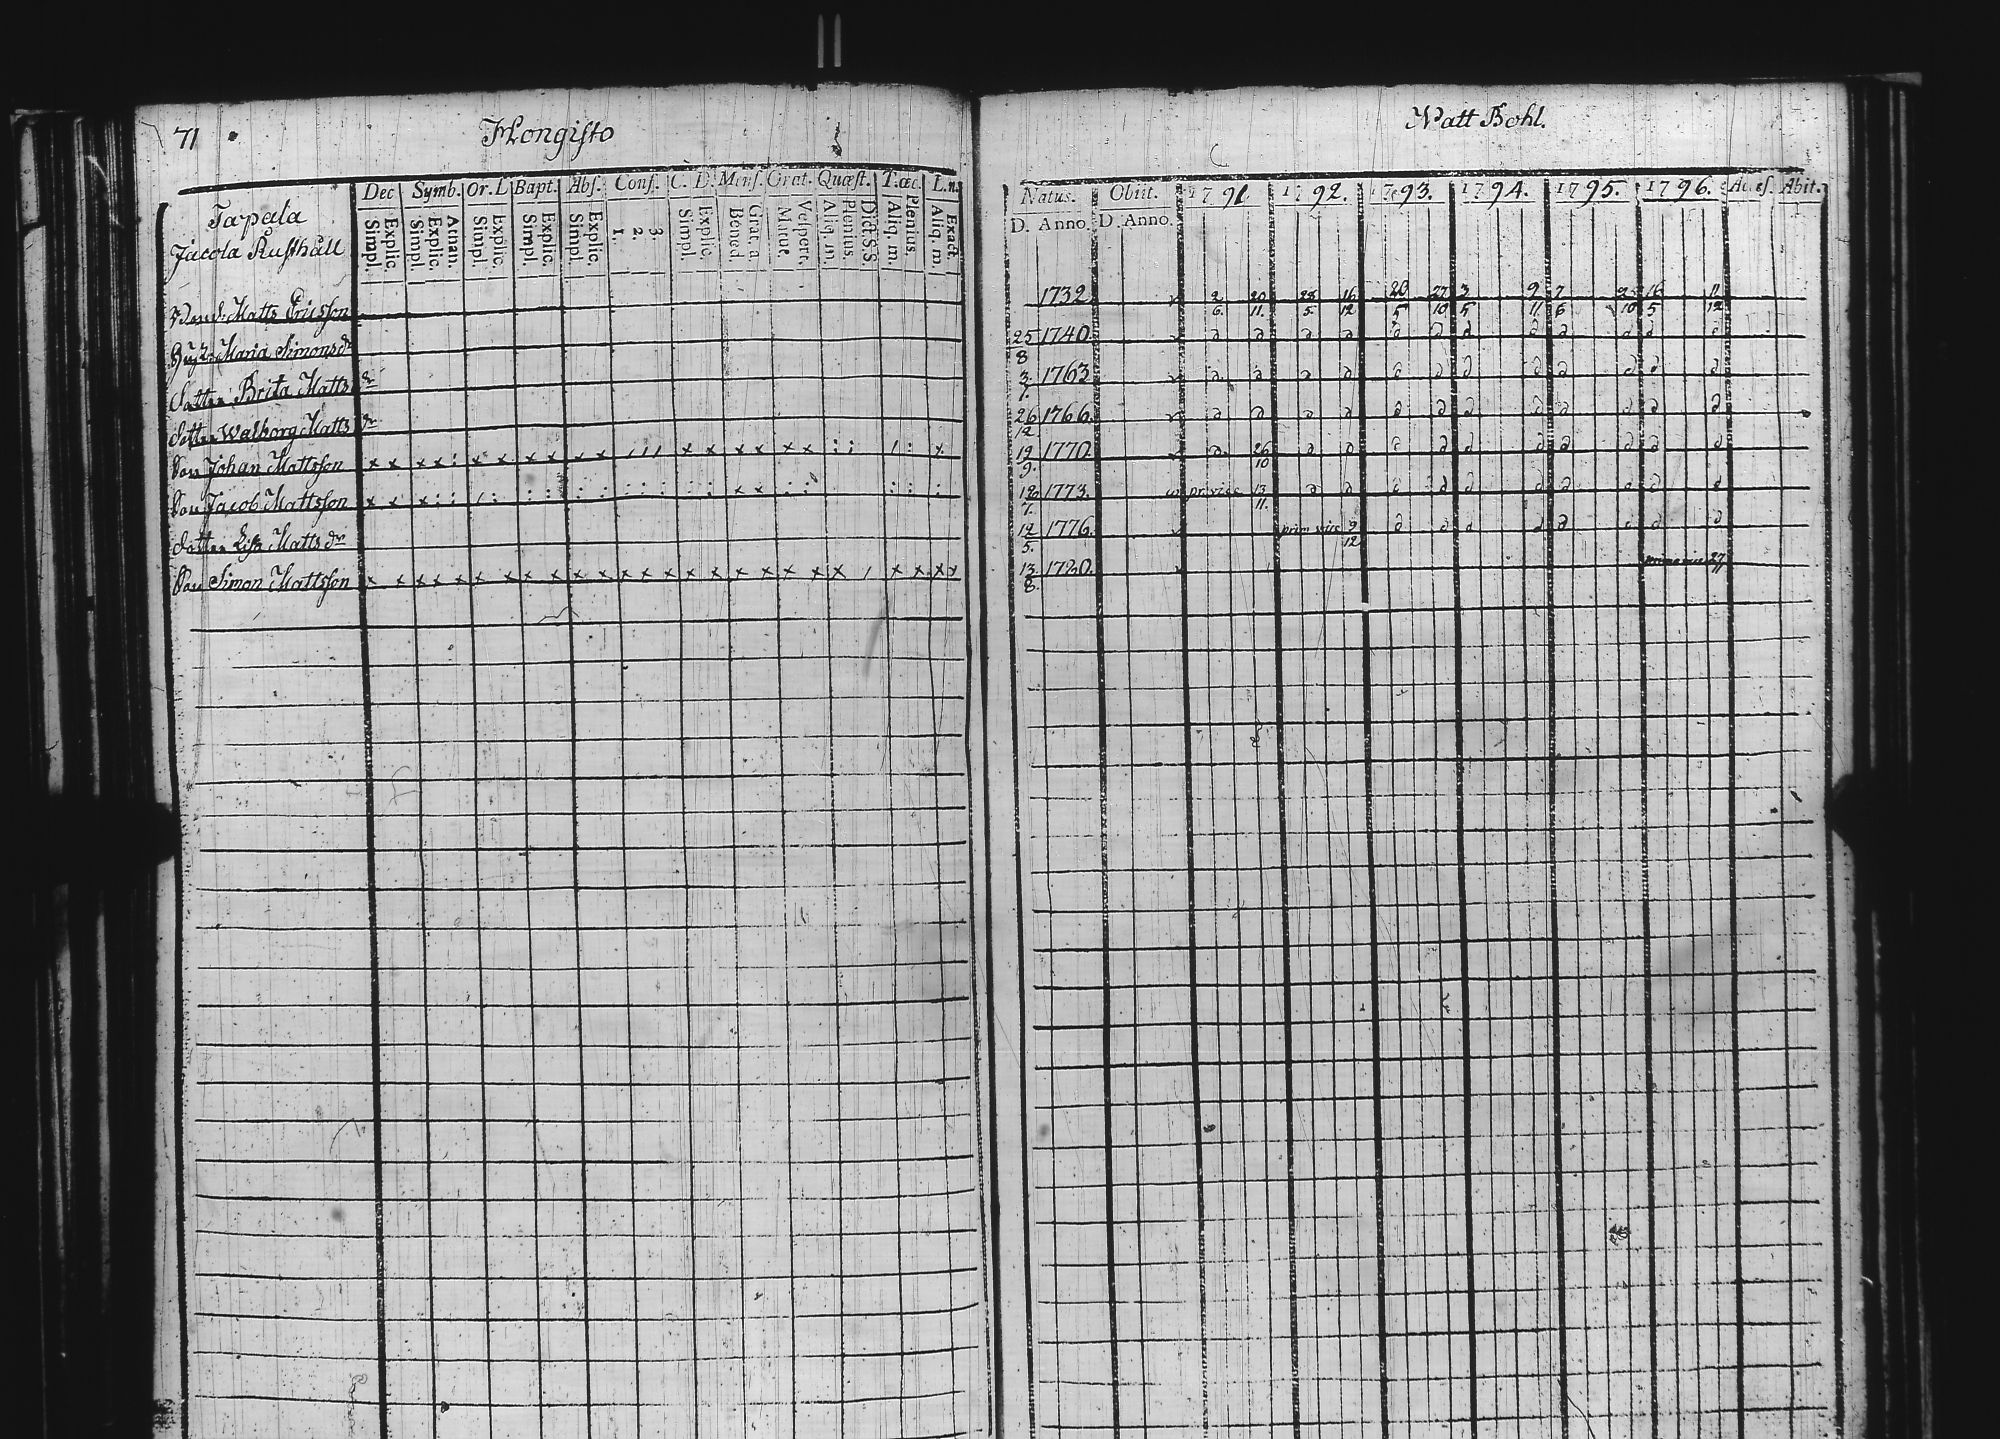 71 Hongisto
Dec Symb. Or. D Bapt. Abs. Conf. C. D. Mens. Grat. Quæst. T. œc. L. n.
Tapala
Jacola Rusthåll
Explic. Simpl. Athan. Explic. Simpl. Explic. Simpl. Explic. Simpl. Explic. Simpl. 3. 2. 1. Explic. Simpl. Grat. a Bened. Vespert. Matut. Dict. S.S. Plenius. Aliq. m. Plenius. Aliq. m. Exact. Aliq. m.
Matts Ericsson
Maria Simonsdr
dotter Brita Matts dr
dotter Walborg Matts dr
Son Johan Mattsson x x x x : x x x x x x / / / x x x x x x : : / : x
Son Jacob Mattsson
dotter Lisa Matts dr
Son Simon Mattsson
Watt Bohl.
Natus. Obiit. 1791. 1792. 1793. 1794. 1795. 1796. Acces. Abit.
D. Anno. D. Anno.
1732 2/6. 20/11. 28/5 16/12 20/5 27/10 3/5 9/11 7/6 25/10 16/5 11/12
25/8 1740. d d d d d d d d d d d d
3/7. 1763 d d d d d d d d d d d d
26/12 1766. d d d d d d d d d d d d
19/9. 1770. d 26/10 d d d d d d d d d d
18/7. 1773. pr. vice 13/11. d d d d d d d d d d
12/5. 1776. prim vice 9/12 d d d d d d d d
13/8. 1780. 27